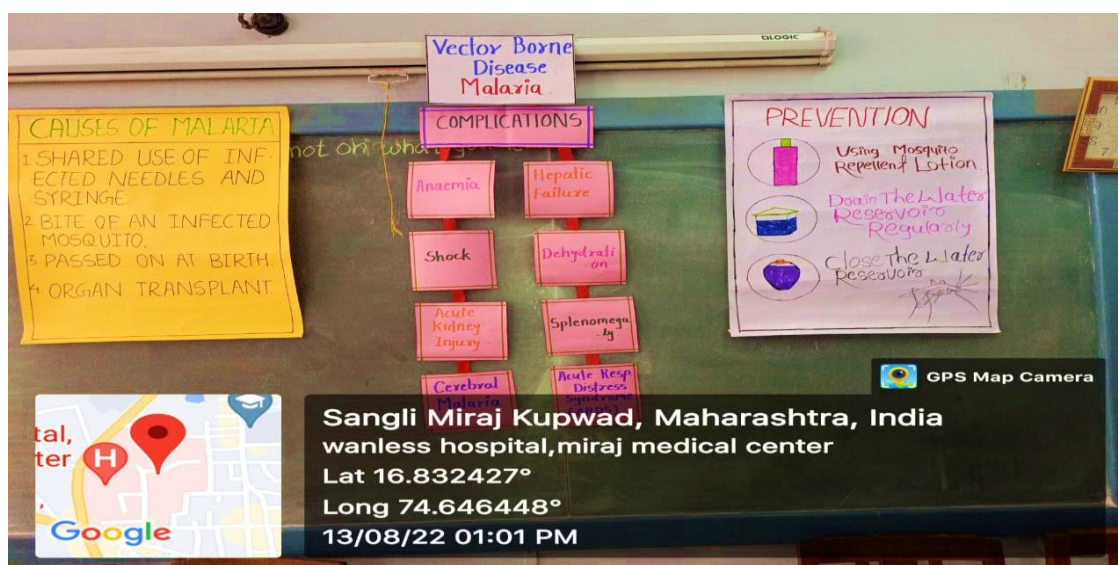 QLOGIC
Vector Borne
Disease
Malaria.
CAUSES OF MALARIA
1 SHARED USE OF INF-
ECTED NEEDLES AND
SYRINGE.
2 BITE OF AN INFECTED
MOSQUITO.
3 PASSED ON AT BIRTH.
4. ORGAN TRANSPLANT.
not on what
COMPLICATIONS
Anaemia
Hepatic
Failure
Shock
Dehydrati
on
Acute
Kidney
Injury
Splenomega
-ly
Cerebral
Malaria
Acute Resp
Distress
Syndrome
(ARDS)
PREVENTION
Using Mosquito
Repellent Lotion
Drain The Water
Reservoir
Regularly
Close The Water
Reservoir
GPS Map Camera
tal,
ter
H
Google
Sangli Miraj Kupwad, Maharashtra, India
wanless hospital,miraj medical center
Lat 16.832427°
Long 74.646448°
13/08/22 01:01 PM